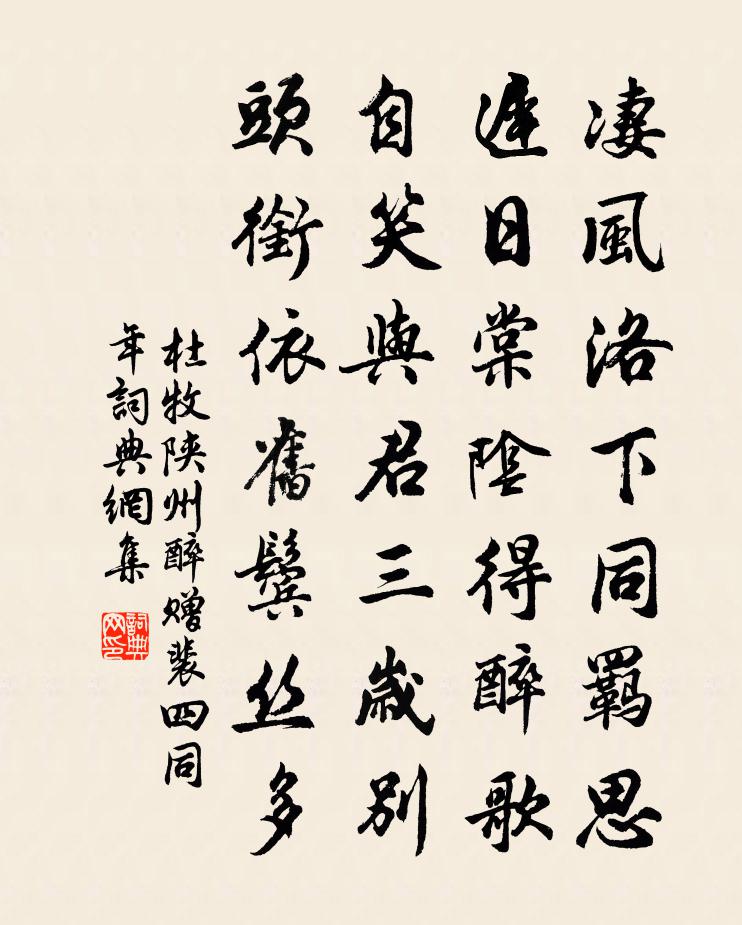 凄風洛下同羈思
遲日棠陰得醉歌
自笑與君三歲別
頭銜依舊鬢丝多
杜牧陕州醉赠裴四同
年詞典網集
詞典网印